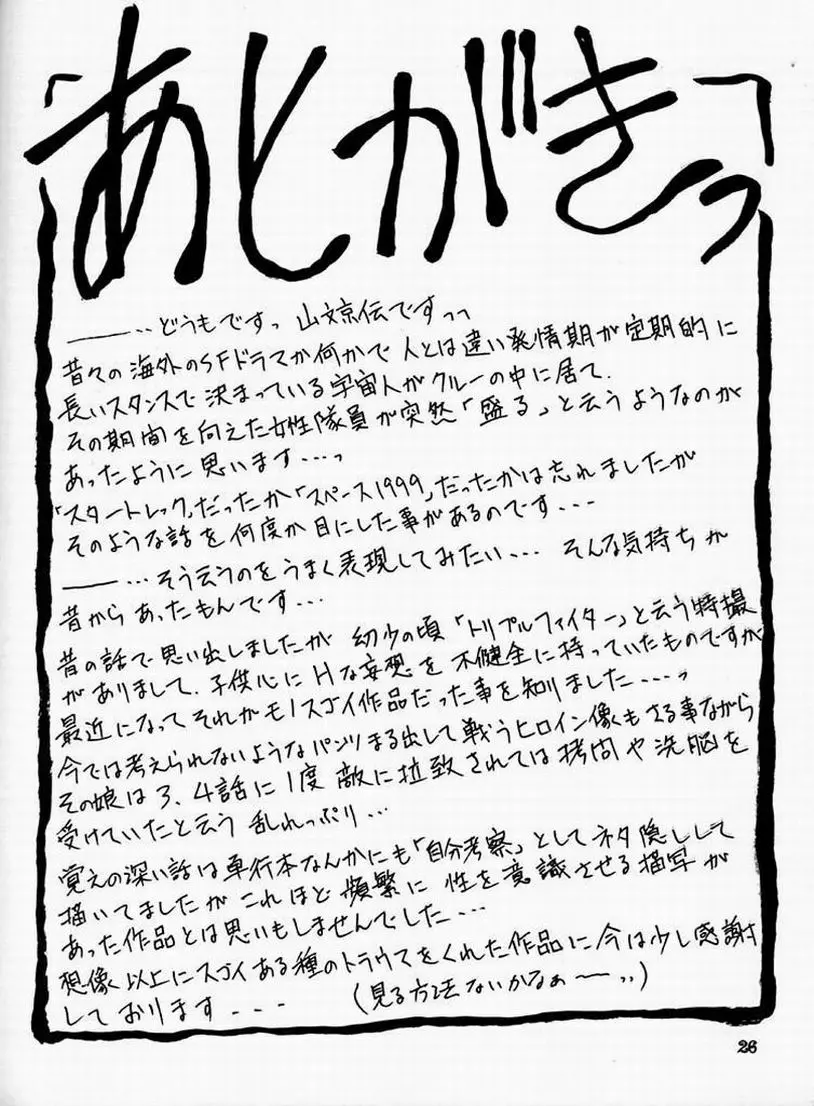 あとがきっ
――‥どうもですっ 山文京伝ですっっ
昔々の海外のSFドラマか何かで人とは違い発情期が定期的に
長いスタンスで決まっている宇宙人がクルーの中に居て.
その期間を向えた女性隊員が突然「盛る」と云うようなのが
あったように思います…っ
「スタートレック」だったか「スペース1999」だったかは忘れましたが
そのような話を何度か目にした事があるのです…
――…そう云うのをうまく表現してみたい… そんな気持ちが
昔からあったもんです…
昔の話で思い出しましたが 幼少の頃「トリプルファイター」と云う特撮
がありまして、子供心にHな妄想を不健全に持っていたものですが
最近になってそれがモノスゴイ作品だった事を知りました…っ
今では考えられないようなパンツまる出しで戦うヒロイン像もさる事ながら
その娘は3、4話に1度 敵に拉致されては拷問や洗脳を
受けていたと云う乱れっぷり…
覚えの深い話は単行本なんかにも「自分考察」としてネタ隠しして
描いてましたがこれほど頻繁に性を意識させる描写が
あった作品とは思いもしませんでした…
想像以上にスゴイある種のトラウマをくれた作品に今は少し感謝
しております… (見る方法ないかなぁー‥)
26